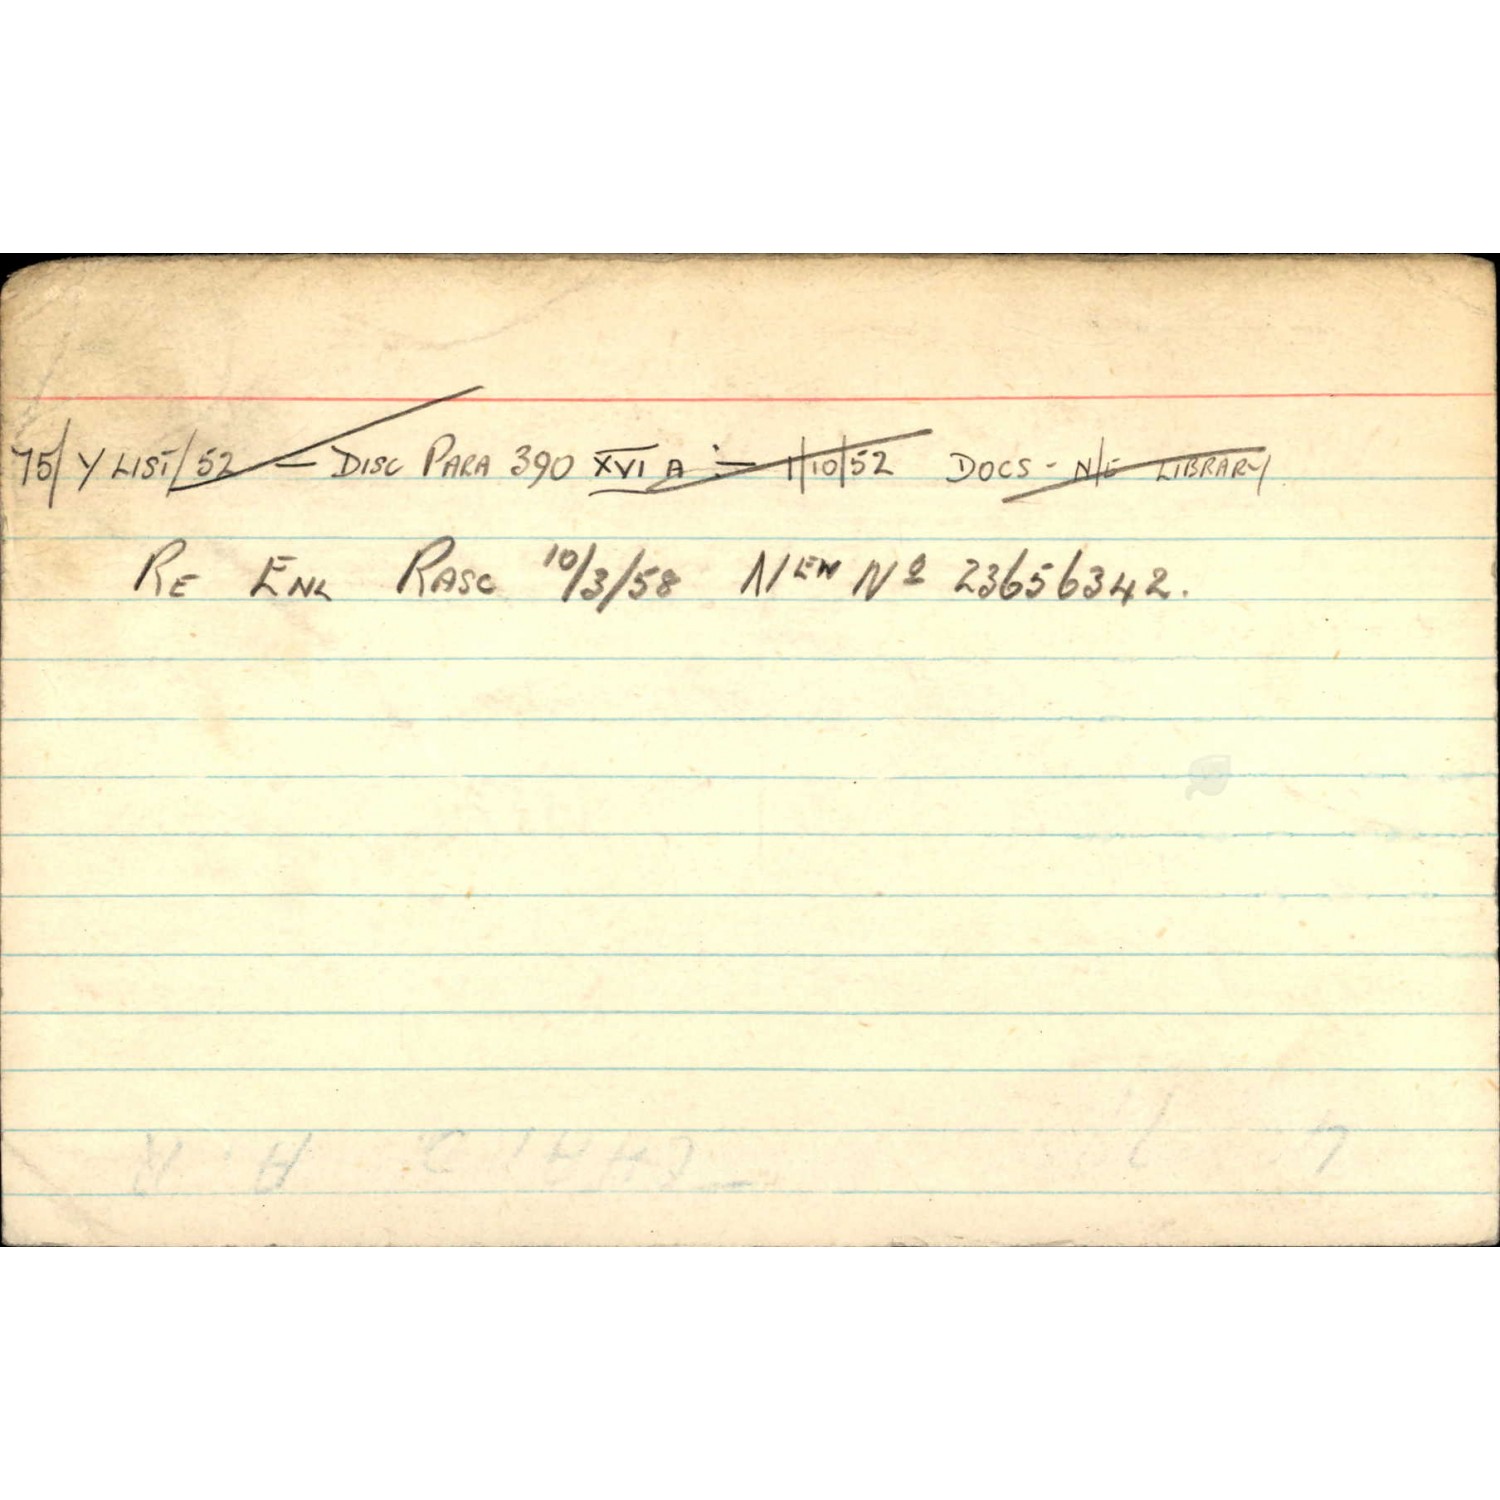 75/Y LIST/52 — DISC PARA 390 XVI A :— 1/10/52 DOCS - N/E LIBRARY
RE ENL RASC 10/3/58 NEW No 23656342.